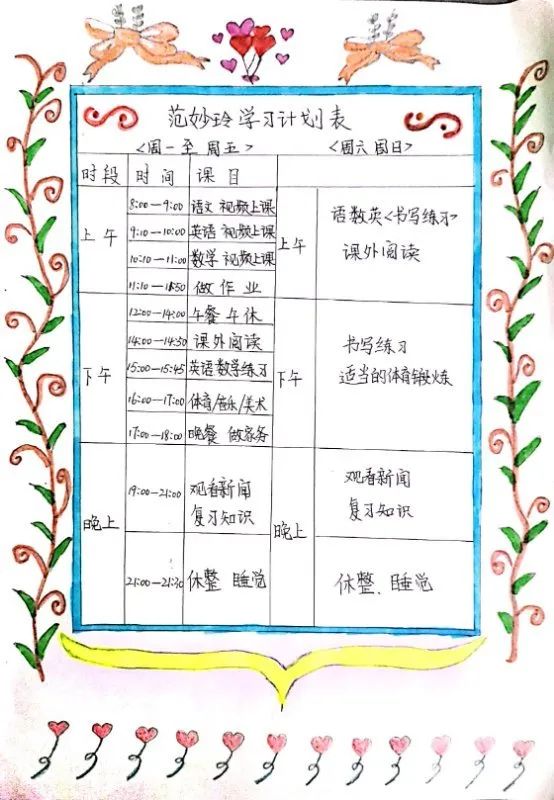 范妙玲学习计划表
<周一至周五> <周六周日>
时段 时间 课目
上午
8:00—9:00 语文 视频上课
9:10—10:00 英语 视频上课
10:10—11:00 数学 视频上课
11:10—11:50 做作业
上午
语数英<书写练习>
课外阅读
下午
12:00—14:00 午餐 午休
14:00—14:30 课外阅读
15:00—15:45 英语数学练习
16:00—17:00 体育/音乐/美术
17:00—18:00 晚餐 做家务
下午
书写练习
适当的体育锻炼
晚上
19:00—21:00 观看新闻
复习知识
21:00—21:30 休整 睡觉
晚上
观看新闻
复习知识
休整、睡觉